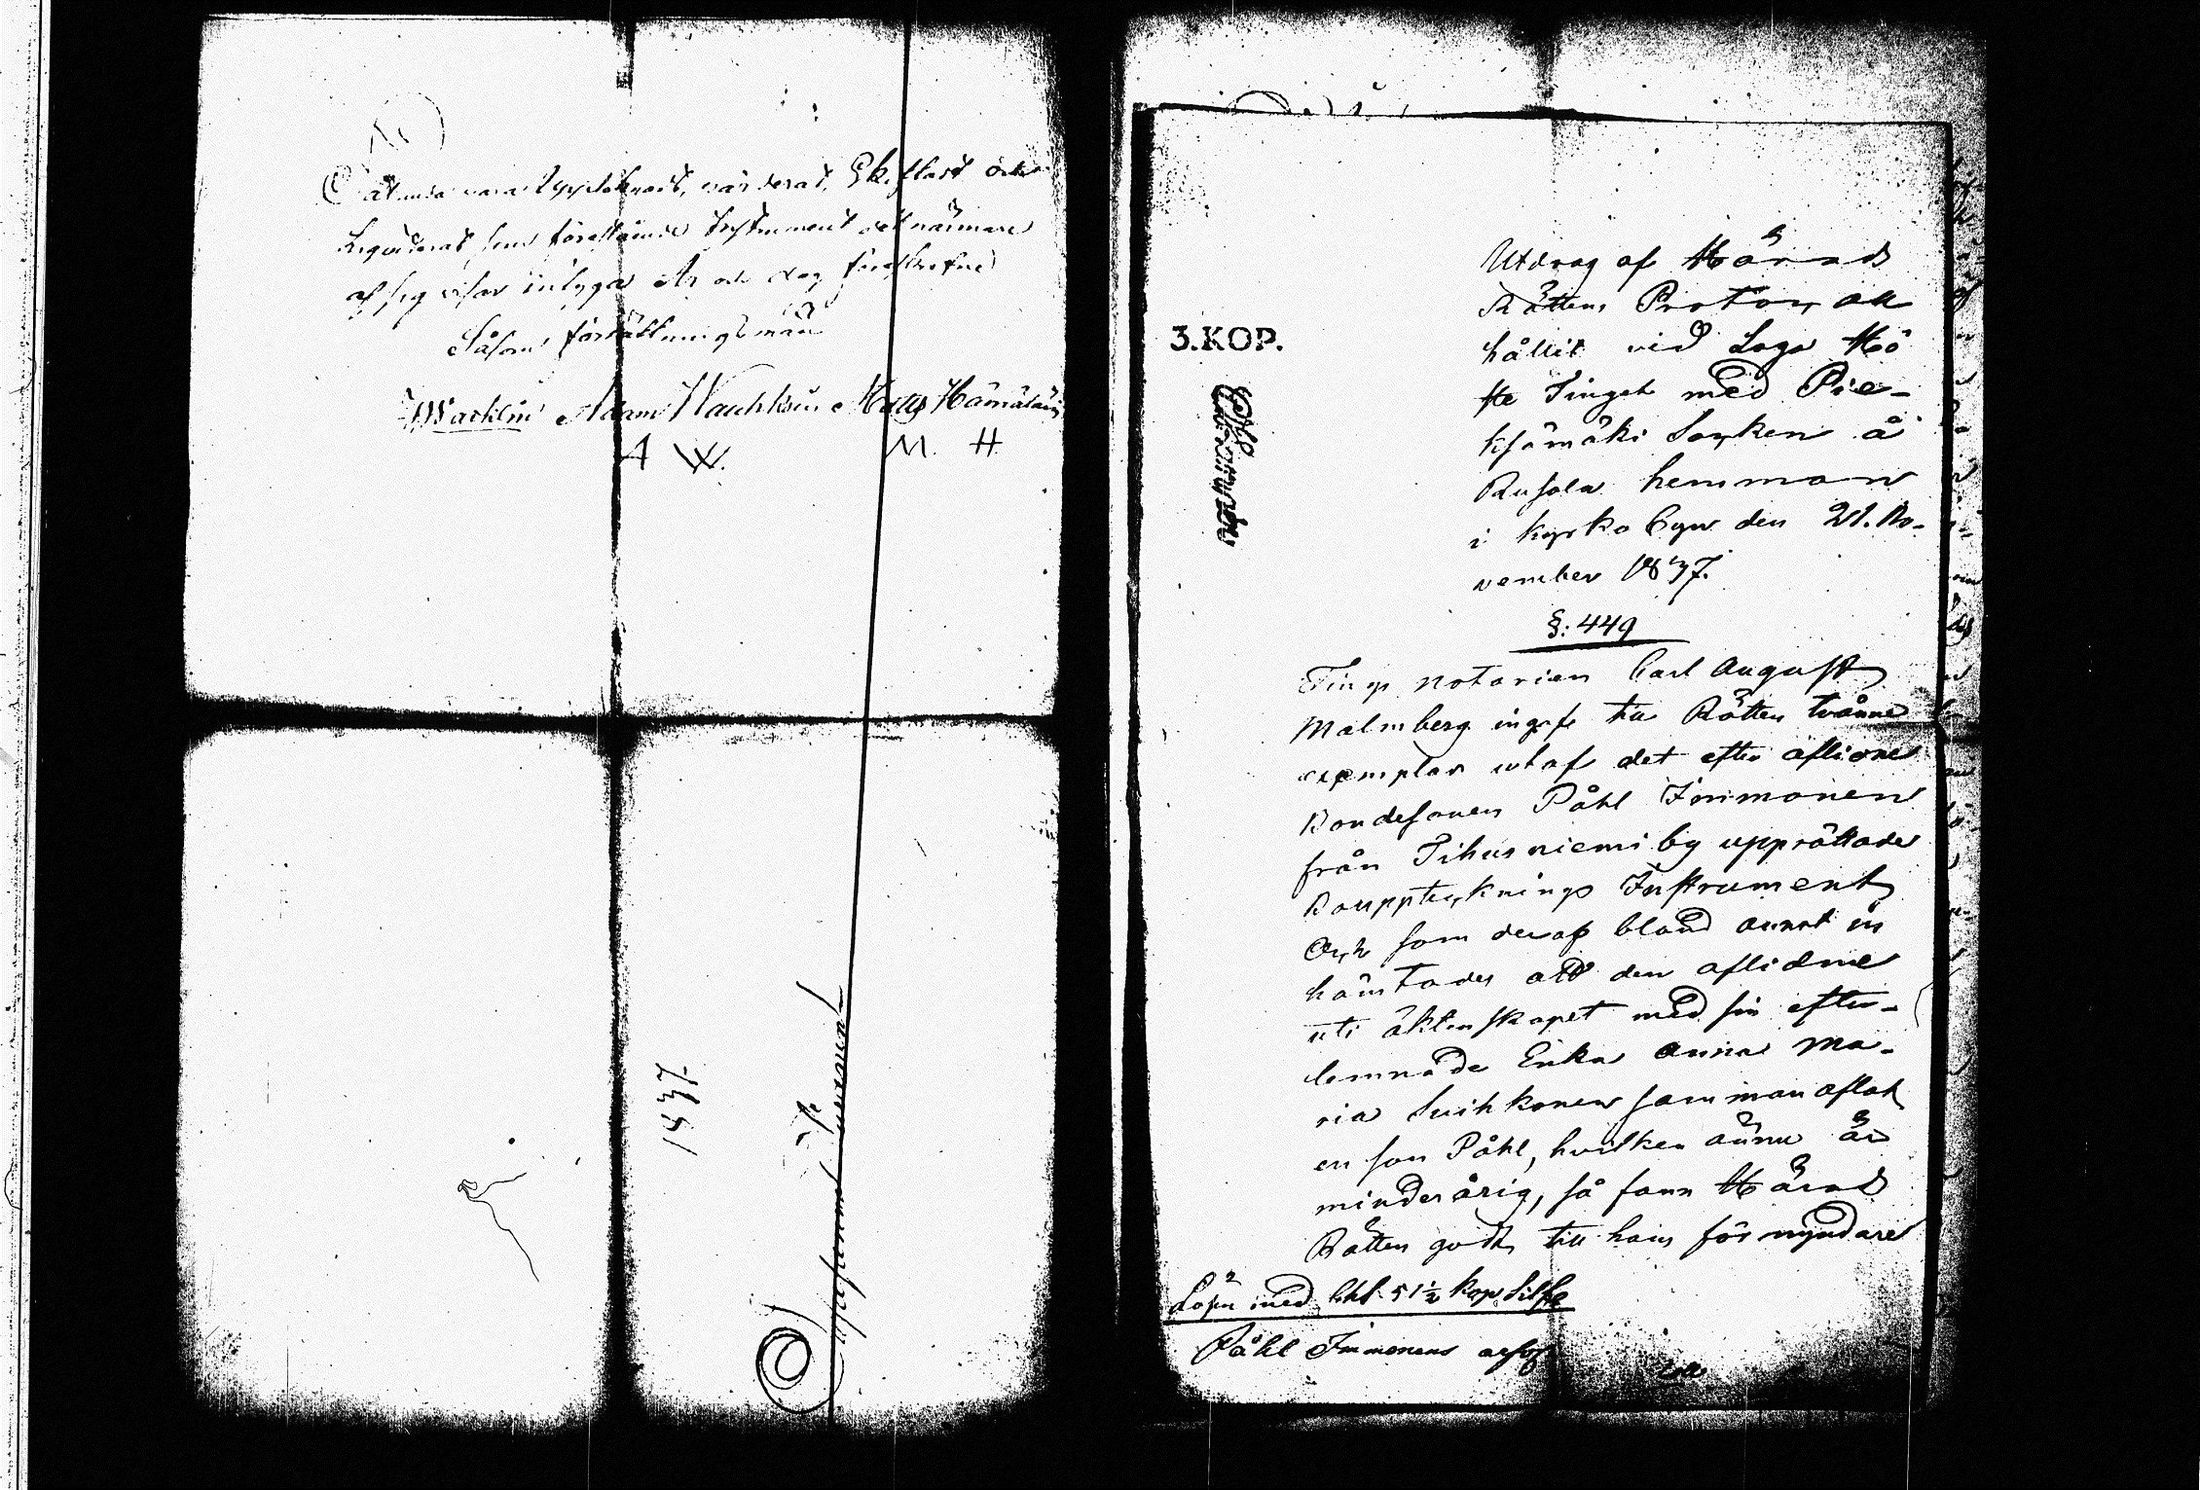 Såtunda vara Upptecknadt, värderat, Skiftadt och
Liqviderat som förestående Instrument det närmare
af sig visar intyga År och dag förutskrefne
Såsom förrättningsmän
Wacklin Adam Hauhkoin Matts Hämäläin
A W. M. H
1837
Pi Immonen
3.KOP.
Utdrag af Härads
Rättens Protocoll
hållit vid Laga Hö
ste Tinget med Pie-
ksämäki Socken å
Rusola hemman
i kyrko Byn den 21. No-
vember 1837.
§: 449
Tings notarien Carl August
Malmberg ingaf till Rätten tvänne
exemplar utaf det efter aflidne
Bondesonen Påhl Immonen
från Tihusniemi by upprättade
Boupptecknings Instrument
Och som deraf bland annat in
hämtades att den aflidne
uti äktenskapet med sin efter-
lemnade Enka Anna Ma-
ria Suihkonen samman aflat
en son Påhl, hvilken ännu är
minderårig, så fann Härads
Rätten godt till hans förmyndare
Lösen med 51½ kop Silfr
Påhl Immonens